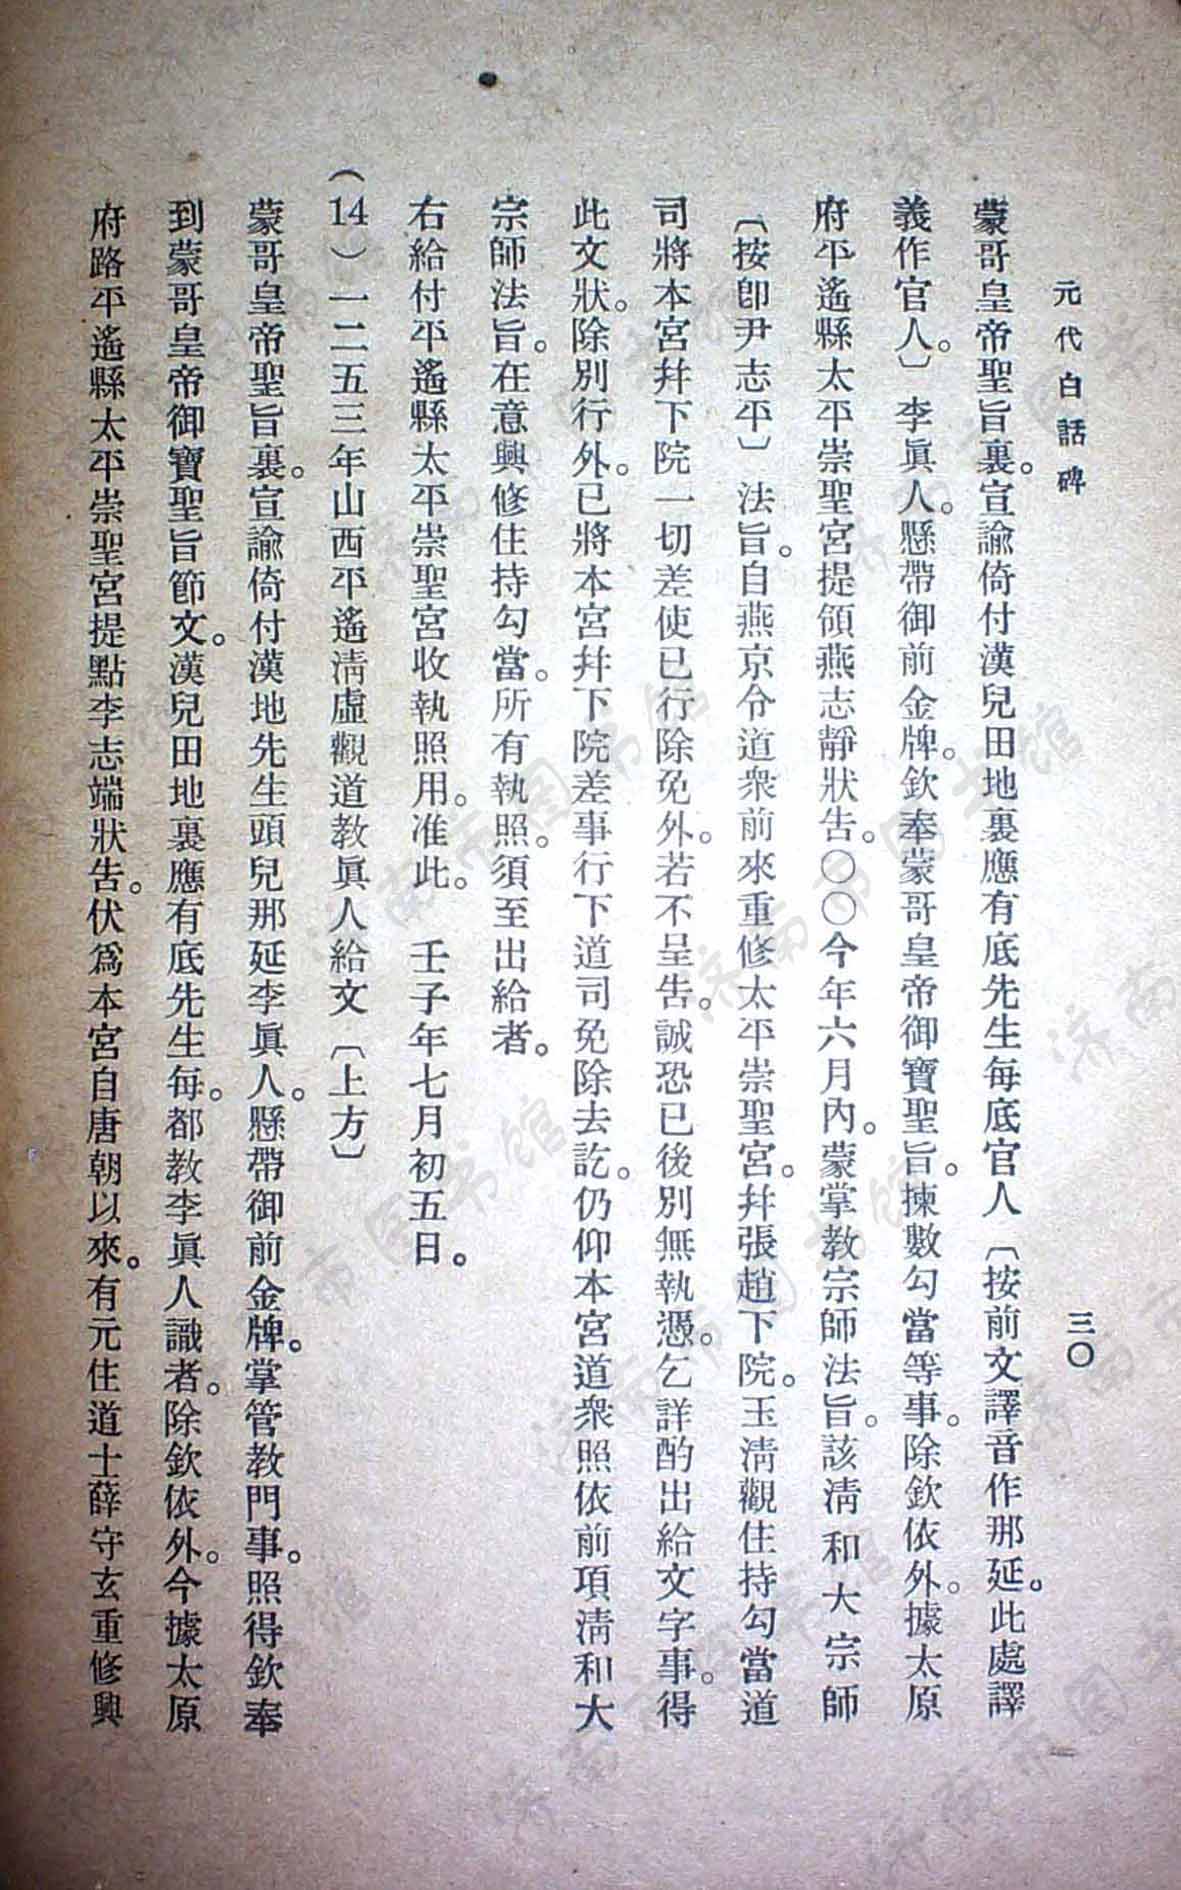 元代白話碑
三〇
蒙哥皇帝聖旨裏。宣諭倚付漢兒田地裏應有底先生每底官人〔按前文譯音作那延。此處譯
義作官人。〕李眞人。懸帶御前金牌。欽奉蒙哥皇帝御寶聖旨。揀數勾當等事。除欽依外。據太原
府平遙縣太平崇聖宮提領燕志靜狀告。〇〇今年六月內。蒙掌教宗師法旨。該清和大宗師
〔按卽尹志平〕法旨。自燕京令道衆前來重修太平崇聖宮。幷張趙下院。玉清觀住持勾當道
司將本宮幷下院一切差使已行除免外。若不呈告。誠恐已後別無執憑。乞詳酌出給文字事。得
此文狀。除別行外。已將本宮幷下院差事行下道司免除去訖。仍仰本宮道衆照依前項清和大
宗師法旨。在意興修住持勾當。所有執照。須至出給者。
右給付平遙縣太平崇聖宮收執照用。准此。壬子年七月初五日。
（14）一二五三年山西平遙清虛觀道教眞人給文〔上方〕
蒙哥皇帝聖旨裏。宣諭倚付漢地先生頭兒那延李眞人。懸帶御前金牌。掌管教門事。照得欽奉
到蒙哥皇帝御寶聖旨節文。漢兒田地裏應有底先生每。都教李眞人識者。除欽依外。今據太原
府路平遙縣太平崇聖宮提點李志端狀告。伏爲本宮自唐朝以來。有元住道士薛守玄重修興
济南市图书馆
济南市图书馆
济南市图书馆
济南市图书馆